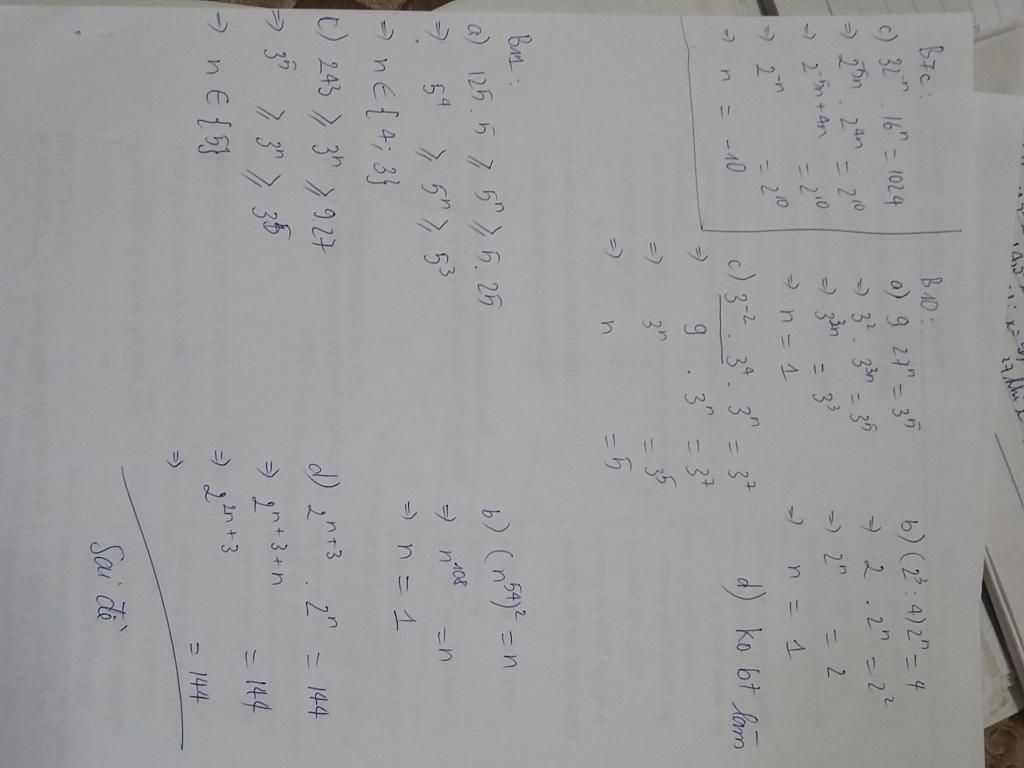 B7c:
c) 32⁻ⁿ . 16ⁿ = 1024
⇒ 2⁻⁵ⁿ . 2⁴ⁿ = 2¹⁰
⇒ 2⁻⁵ⁿ⁺⁴ⁿ = 2¹⁰
⇒ 2⁻ⁿ = 2¹⁰
⇒ n = -10
B10:
a) 9 27ⁿ = 3⁵
⇒ 3² . 3³ⁿ = 3⁵
⇒ 3³ⁿ = 3³
⇒ n = 1
b) (2³ : 4) 2ⁿ = 4
⇒ 2 . 2ⁿ = 2²
⇒ 2ⁿ = 2
⇒ n = 1
c) 3⁻² . 3⁴ . 3ⁿ = 3⁷
⇒ 9 . 3ⁿ = 3⁷
⇒ 3ⁿ = 3⁵
⇒ n = 5
d) ko bt làm
B11:
a) 125 . 5 ⩾ 5ⁿ ⩾ 5.25
⇒ 5⁴ ⩾ 5ⁿ ⩾ 5³
⇒ n ∈ {4; 3}
c) 243 ⩾ 3ⁿ ⩾ 927
⇒ 3⁵ ⩾ 3ⁿ ⩾ 3⁵
⇒ n ∈ {5}
b) (n⁵⁴)² = n
⇒ n¹⁰⁸ = n
⇒ n = 1
d) 2ⁿ⁺³ . 2ⁿ = 144
⇒ 2ⁿ⁺³⁺ⁿ = 144
⇒ 2²ⁿ⁺³ = 144
⇒
Sai đề